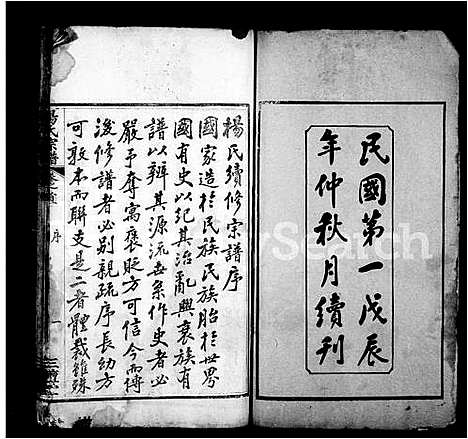 民國第一戊辰
年仲秋月續刊
楊氏續修宗譜序
國家造於民族民族胎於世界
國有史以纪其治亂興衰族有
譜以辨其源流世系作史者必
嚴予奪寓褒貶方可信今而傳
後修譜者必別親疏序長幼方
可敦本而聯支是二者體裁雖殊
楊氏宗譜 卷之首 序 一
Search